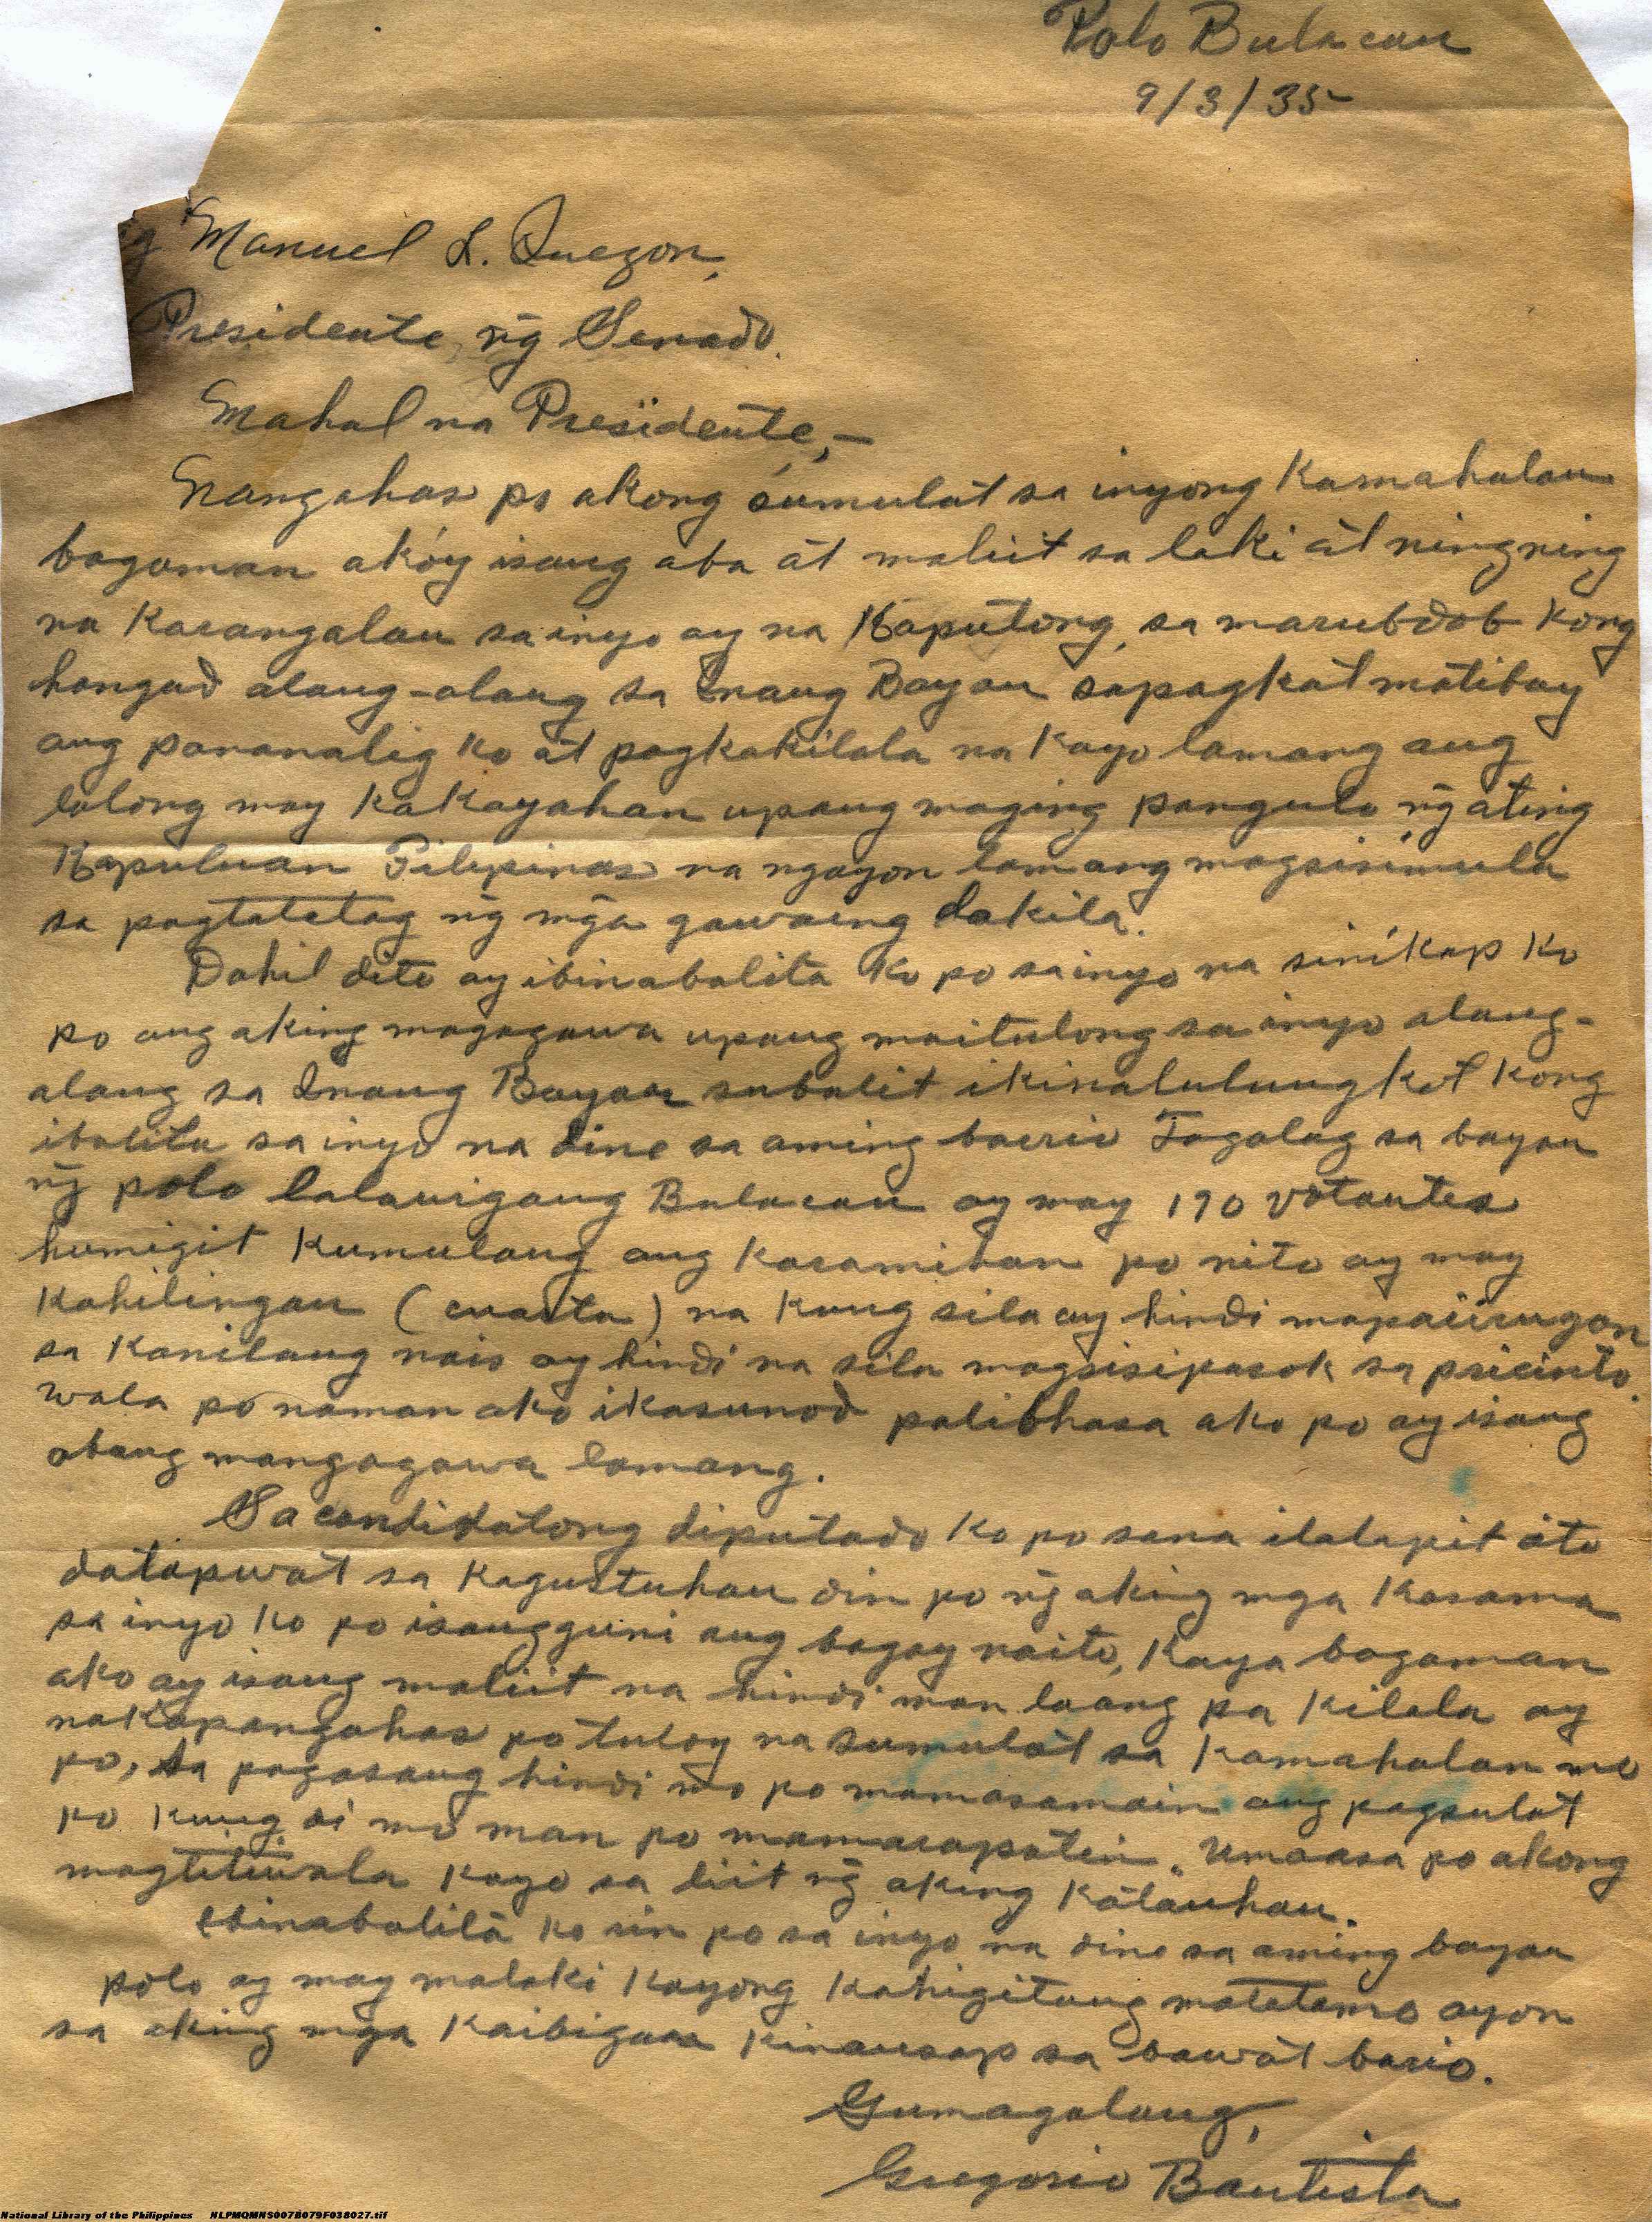 Polo Bulacan
9/3/35
g Manuel L. Quezon,
Presidente, ng Senado.
Mahal na Presidente,—
Nangahas po akong sumulat sa inyong Kamahalan
bagaman ako'y isang aba at maliit sa laki at ningning
na karangalan sa inyo ay na Kaputong, sa marubdob kong
hangad alang-alang sa Inang Bayan sapagkat matibay
ang pananalig ko at pagkakilala na kayo lamang ang
lalong may kakayahan upang maging pangulo ng ating
Kapuluan Pilipinas na ngayon lamang magsisimula
sa pagtatatag ng mga gawaing dakila.
Dahil dito ay ibinabalita ko po sa inyo na sinikap ko
po ang aking magagawa upang maitulong sa inyo alang-
alang sa Inang Bayan subalit ikinalulungkot kong
ibalita sa inyo na dine sa aming barrio Tagalag sa bayan
ng polo lalawigang Bulacan ay may 190 votantes
humigit kumulang ang karamihan po nito ay may
kahilingan (cuarta) na kung sila ay hindi mapaiirugan
sa kanilang nais ay hindi na sila magsisipasok sa pricinto.
wala po naman ako ikasunod palibhasa ako po ay isang
abang mangagawa lamang.
Sa candidatong diputado ko po sana ilalapit ito
datapwat sa kagustuhan din po ng aking mga kasama
sa inyo ko po isangguni ang bagay naito, kaya bagaman
ako ay isang maliit na hindi man laang pa kilala ay
nakapangahas po tuloy na sumulat sa kamahalan mo
po, sa pagasang hindi mo po mamasamain ang pagsulat
po kung di mo man po mamarapatin. Umaasa po akong
magtitiwala kayo sa liit ng aking katauhan.
Ibinabalita ko rin po sa inyo na dine sa aming bayan
polo ay may malaki kayong kahigitang matatamo ayon
sa aking mga kaibigan kinausap sa bawat bario.
Gumagalang,
Gregorio Bautista
National Library of the Philippines NLPMQMNS007B079F038027.tif